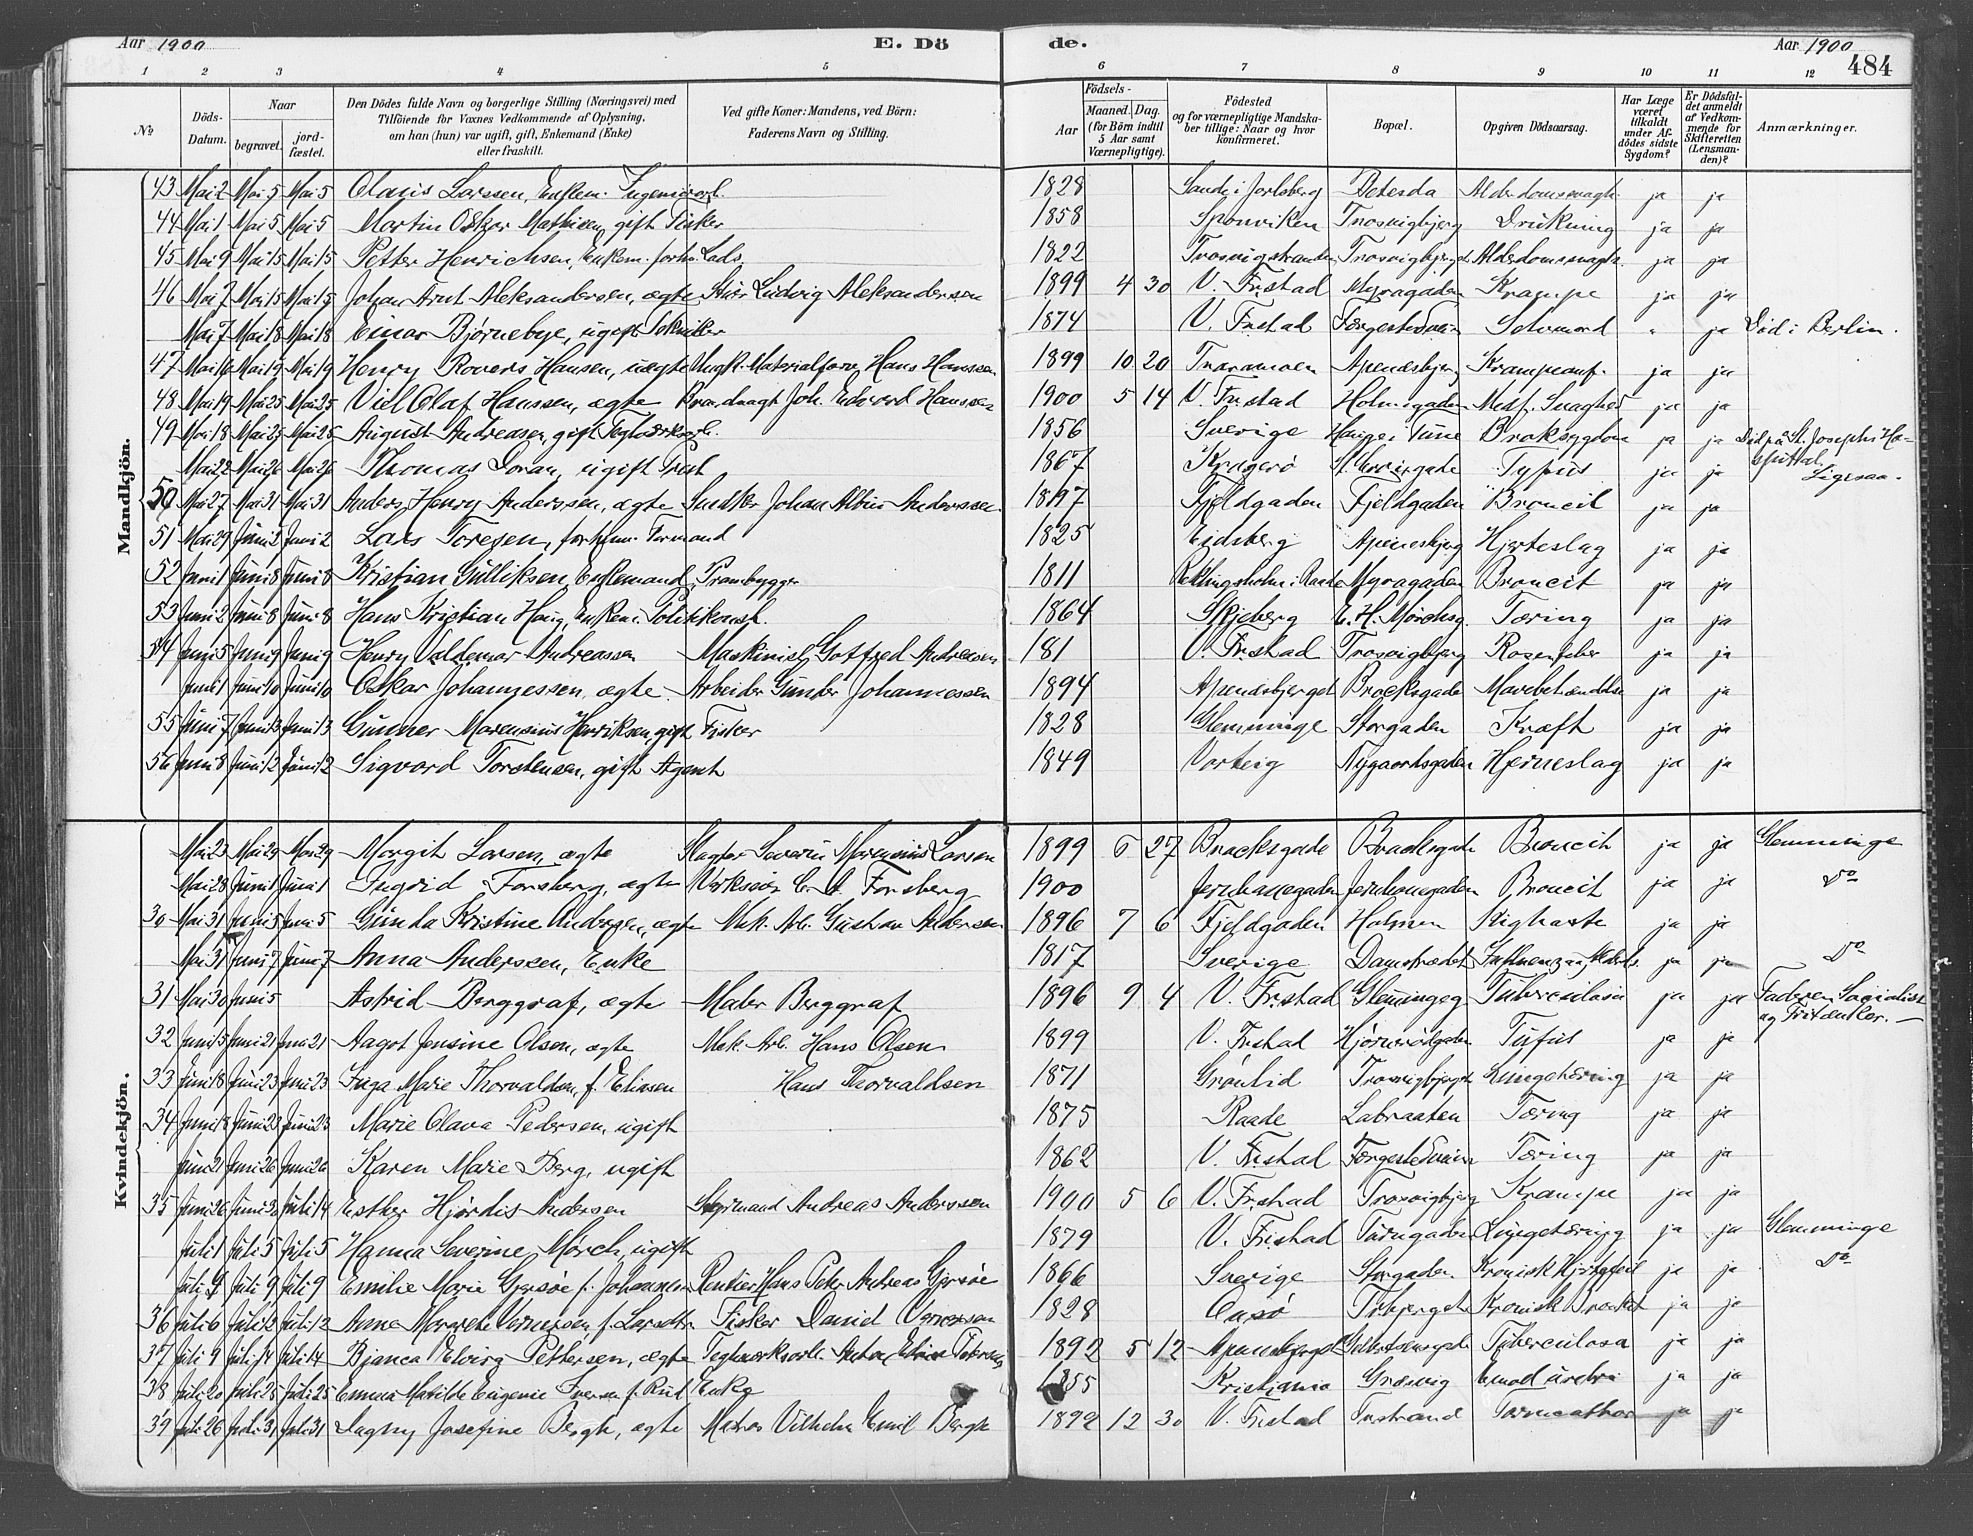 Aar 1900 E. Dö de. Aar 1900 484
1 2 3 4 5 6 7 8 9 10 11 12
№ Döds-Datum. Naar begravet. jordfæstet. Den Dödes fulde Navn og borgerlige Stilling (Næringsvei) med Tilföiende for Vaxnes Vedkommende af Oplysning, om han (hun) var ugift, gift, Enkemand (Enke) eller fraskilt. Ved gifte Koner: Mandens, ved Börn: Faderens Navn og Stilling. Födsels- Aar Maaned. Dag. (for Börn indtil 5 Aar samt Værnepligtige). Födested og for værnepligtige Mandskaber tillige: Naar og hvor konfirmeret. Bopæl. Opgiven Dödsaarsag. Har Læge været tilkaldt under Afdödes sidste Sygdom? Er Dödsfaldet anmeldt af Vedkommende for Skifteretten (Lensmanden)? Anmærkninger.
Mandkjön.
43 Mai 2 Mai 5 Mai 5 Olaus Larssen, Enkem. 1828 Sande i Jarlsberg Betesda Alderdomssvagh. ja ja
44 Mai 1 Mai 5 Mai 5 Martin Oskar Mathisen, gift Fisker 1858 Sponviken Trosvigbjerg Drukning ja ja
45 Mai 9 Mai 15 Mai 15 Petter Henrichsen, Enkem. forhv. Lods. 1822 Trosvigstranden Trosvigbjerget Alderdomssvagh. ja ja
46 Mai 7 Mai 15 Mai 15 Johan Arnt Aleksandersen, ægte Ludvig Aleksandersen 1899 4 30 V. Frstad Myragaden Krampe ja ja
Mai 7 Mai 18 Mai 18 Einar Bjørnebye, ugift Tekniker 1874 V. Frstad Selvmord " ja Død i Berlin.
47 Mai 16 Mai 19 Mai 19 Henry Rovers Hansen, uægte Ungk. Materialforv. Hans Hanssen 1899 10 20 Traramoen Apenesbjerg Krampeanf. ja ja
48 Mai 19 Mai 25 Mai 25 Viel Olaf Hanssen, ægte Brandvagt Joh. Edvard Hanssen 1900 5 14 V. Frstad Holmegaden Medf. Svaghed ja ja
49 Mai 18 Mai 25 Mai 25 August Andreasen, gift Teglværksarb. 1856 Sverige Hauge i Tune Broksygdom ja ja Død på St. Josephs Ho-
Mai 22 Mai 26 Mai 26 Thomas Doran, ugift Præst 1867 Kragerø Typus ja ja spital. Ligesaa.
50 Mai 27 Mai 31 Mai 31 Anders Henry Anderssen, ægte Snedker Johan Albin Anderssen. 1897 Fjeldgaden Fjeldgaden Broncit ja ja
51 Mai 29 Juni 2 Juni 2 Lars Toresen, Formand 1825 Eidsberg Apenesbjerg Hjerteslag ja ja
52 Juni 1 Juni 8 Juni 8 Kristian Gulliksen, Enkemand, Prambygger 1811 Myragaden Broncit ja ja
53 Juni 2 Juni 8 Juni 8 Hans Kristian Haug, Enkem. Politikonst. 1864 Skjeberg E. H. Mørchsg. Tæring ja ja
54 Juni 5 Juni 9 Juni 9 Henry Valdemar Andreassen Maskinist Gotfred Andreasen 181 V. Frstad Trosvigbjerg Rosenfeber ja ja
Juni 1 Juni 10 Juni 10 Oskar Johannessen, ægte Arbeider Gunder Johannessen 1894 Apenesbjerget Brocksgade Mavebetændelse ja ja
55 Juni 7 Juni 13 Juni 13 Gunner Marensius Henriksen, gift Fisker 1828 Glemminge Storgaden Kræft ja ja
56 Juni 8 Juni 12 Juni 12 Sigvard Torstensen, gift Agent 1849 Varteig Nygaardsgaden Hjerneslag ja ja
Kvindekjön.
Mai 23 Mai 29 Mai 29 Margit Larsen, ægte Slagter Severin Marensius Larsen 1899 6 27 Brocksgade Brocksgade Broncit ja ja Glemminge
Mai 28 Juni 1 Juni 1 Ingrid Forsberg, ægte Forsberg 1900 Jernbanegaden Jernbanegaden Broncit ja ja Do
30 Mai 31 Juni 5 Juni 5 Gunda Kristine Andersen, ægte Mek. Arb. Gustav Andersen 1896 7 6 Fjeldgaden Holmen ja ja
Mai 31 Juni 7 Juni 7 Anna Anderssen, Enke 1817 Sverige Damstrædet Influenza ja ja Do
31 Mai 30 Juni 5 Astrid Berggraf, ægte Maler Berggraf 1896 9 4 V. Frstad Glemingeg Tuberculosa ja ja Faderen Socialist
32 Juni 15 Juni 21 Juni 21 Aagot Jensine Olsen, ægte Mek. Arb. Hans Olsen 1899 V. Frstad Tyfus ja ja og Fritænker.
33 Juni 18 Juni 23 Juni 23 Inga Marie Thorvaldsen, f. Eliasen Hans Thorvaldsen 1871 Grønlid Trosvigbjerget Lungetæring ja ja
34 Juni 18 Juni 23 Juni 23 Marie Olava Pedersen, ugift 1875 Raade Labraaten Tæring ja ja
Juni 21 Juni 26 Juni 26 Karen Marie Berg, ugift 1862 V. Frstad Tæring ja ja
35 Juni 26 Juni Juli 14 Esther Hjørdis Andersen Styrmand Andreas Anderssen 1900 5 6 V. Frstad Trosvigbjerg Krampe ja ja
Juli 1 Juli 5 Juli 5 Hanna Severine Mörch, ugift 1879 V. Frstad Lungetæring ja ja Glemminge
Juli Juli 9 Juli 9 Emilie Marie Gjersöe f. Johannsen Rentier Hans Peter Andreas Gjersöe 1866 Sverige Storgaden Kronisk Hjertefeil ja ja Do
36 Juli 6 Juli 12 Juli 12 Anne Margrete Vernersen f. Larsdtr Fisker Daniel Vernersen 1828 Onsö Kronisk ja ja
37 Juli 9 Juli 14 Juli 14 Bjanca Elvira Pettersen, ægte Teglværksarb. Anton Petersen 1892 5 12 Apenesbjerget Tuberculosa ja ja
38 Juli 20 Juli 25 Juli 25 Emma Matilde Eugenie Iversen f. Rud Enke 1855 Kristiania Græsvig ja ja
39 Juli 26 Juli 31 Juli 31 Dagny Josefine Bergh, ægte Matros Vilhelm Emil Bergh 1892 12 30 V. Frstad ja ja